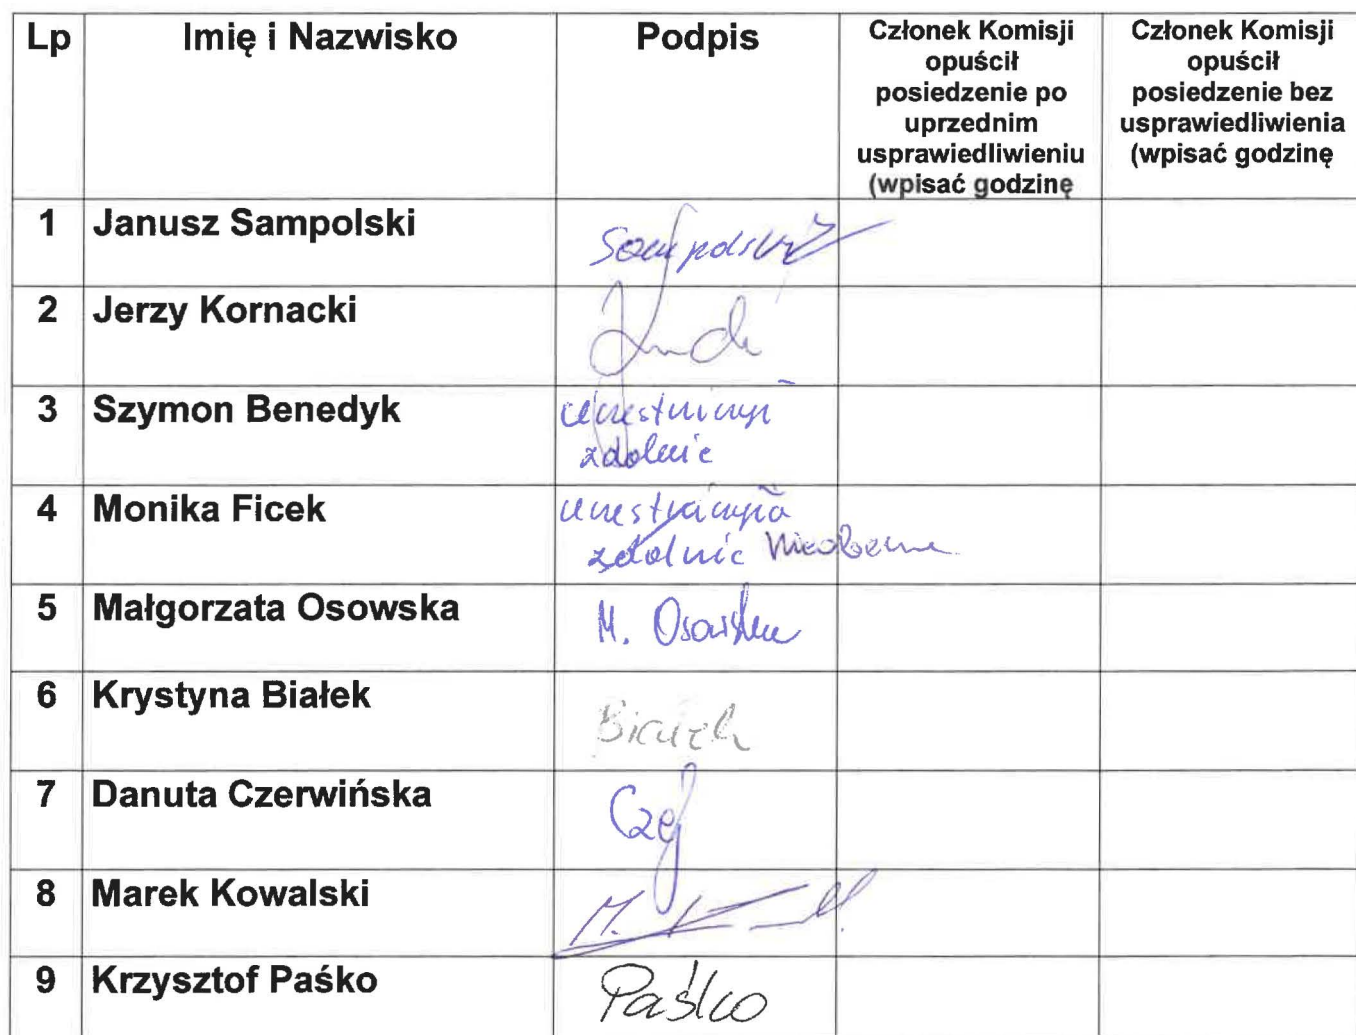 Lp Imię i Nazwisko Podpis Członek Komisji opuścił posiedzenie po uprzednim usprawiedliwieniu (wpisać godzinę Członek Komisji opuścił posiedzenie bez usprawiedliwienia (wpisać godzinę
1 Janusz Sampolski Sampolski
2 Jerzy Kornacki
3 Szymon Benedyk
zdolnie
4 Monika Ficek
zdolnie
5 Małgorzata Osowska M. Osowska
6 Krystyna Białek Białek
7 Danuta Czerwińska
8 Marek Kowalski M.
9 Krzysztof Paśko Paśko